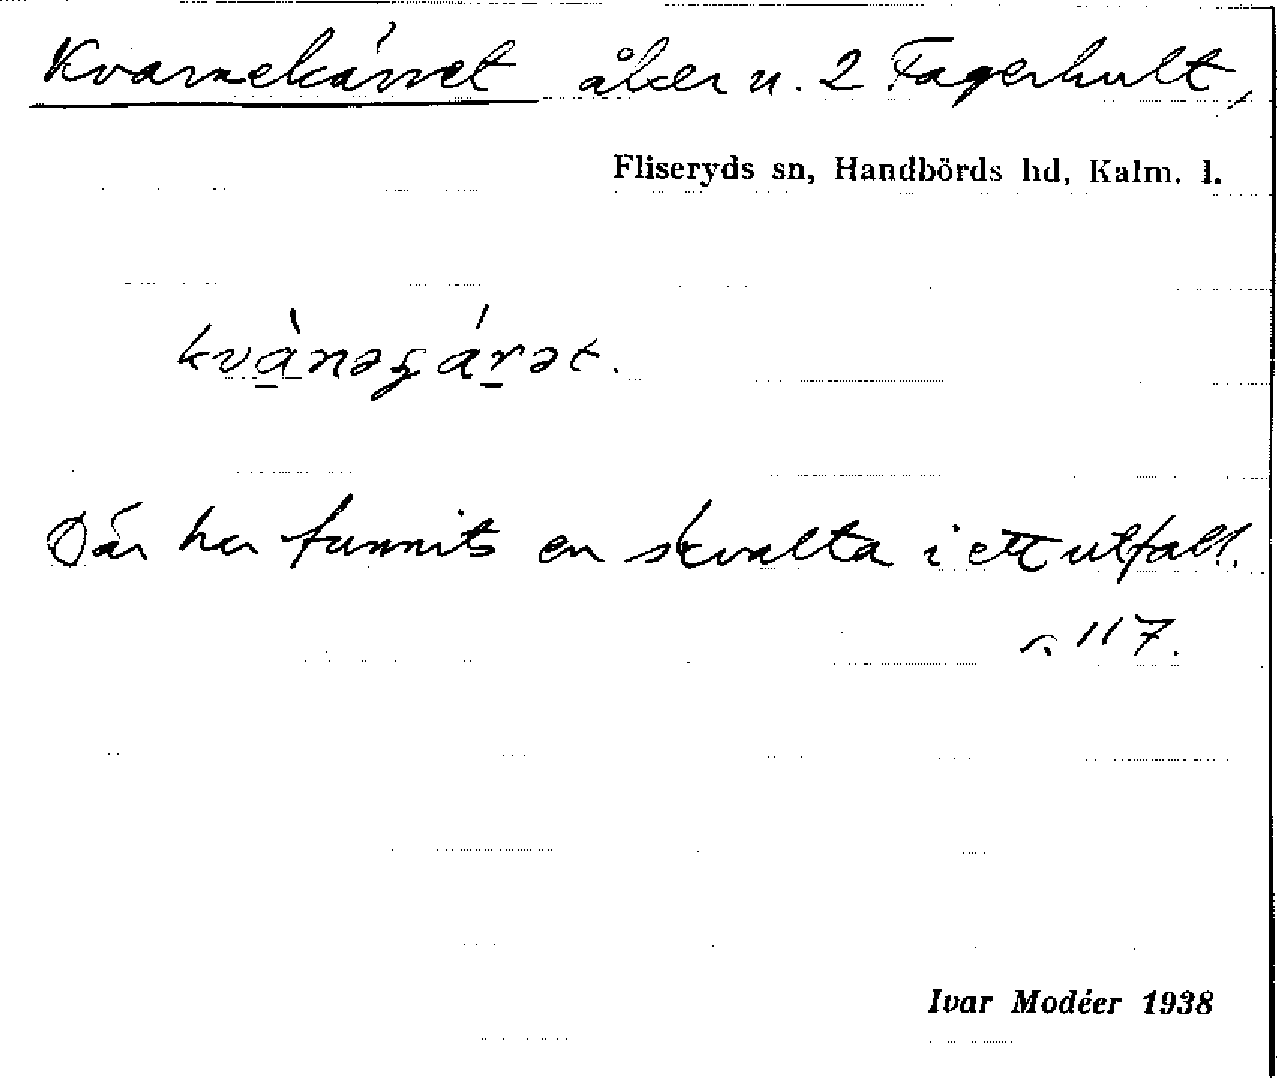 Kvarnekärret åker n. 2 Fagerhult,
Fliseryds sn, Handbörds hd, Kalm. l.
kvànəʓárət.
Där har funnits en skvalta i ett utfall.
s. 117.
Ivar Modéer 1938